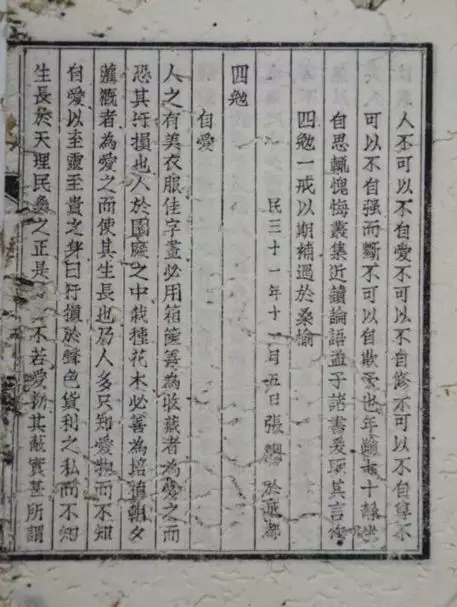 人不可以不自愛不可以不自修不可以不自尊不
可以不自强而斷不可以自欺予也年逾十靜坐
自思輒愧悔叢集近讀論語孟子諸書爰取其言作
四勉一戒以期補過於桑榆
民三十一年十月五日張於成都
四勉
自愛
人之有美衣服佳字畫必用箱篋善為收藏者為愛之而
恐其污損也人於園庭之中栽種花木必善為培植朝夕
灌溉者為愛之而使其生長也乃人多只知愛物而不知
自愛以至靈至貴之身日污損於聲色貨利之私而不知
生長於天理民彝之正是不若愛物其蔽實甚所謂